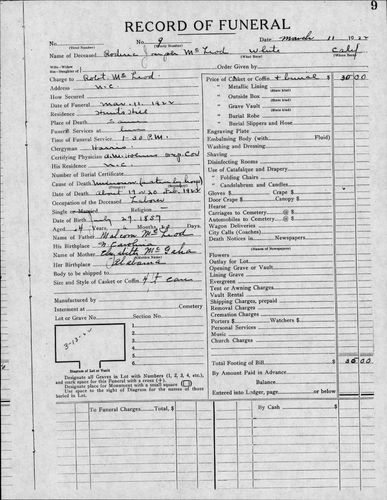 9
RECORD OF FUNERAL
No. 9 Date March 11 1922
(Serial Number) (Yearly Number)
Name of Deceased Joseph McLeod White Cald
Charge to Robt. McLeod Order Given by
Address N.C. Price of Casket or Coffin + burial $ 35 00
How Secured " Metallic Lining
Date of Funeral Mar. 11. 1922 " Outside Box
Residence " Grave Vault
Place of Death " Burial Robe
Funeral Services at " Burial Slippers and Hose
Time of Funeral Service 1:30 P.M. Engraving Plate
Clergyman Harris Embalming Body (with Fluid)
Certifying Physician Washing and Dressing
His Residence N.C. Shaving
Number of Burial Certificate Disinfecting Rooms
Cause of Death Use of Catafalque and Drapery
Date of Death about 19 or 20 Feb. 1922 " Folding Chairs
Occupation of the Deceased Laborer " Candelabrum and Candles
Single or Married Religion Gloves $ Crape $
Date of Birth July 29. 1859 Door Crape $ Candy $
Aged Hearse
Name of Father Malcom McLeod Carriages to Cemetery @ $
His Birthplace N. Carolina Automobiles @ $
Name of Mother Elizabeth McGaha Wagon Deliveries
Her Birthplace Alabama City Calls (Coaches)
Body to be shipped to Death Notices in Newspapers
Size and Style of Casket or Coffin Flowers
Outlay for Lot
Manufactured by Opening Grave or Vault
Interment at Cemetery Lining Grave
Lot or Grave No. Section No. Evergreen
1. Tent or Awning Charges
2. Vault Rental
3-13-22 3. Shipping Charges, prepaid
4. Removal Charges
5. Cremation Charges
6. Porters $ Watchers $
Personal Services
Music
Church Charges
Diagram of Lot or Vault Total Footing of Bill $ 35 00
Designate all Graves in Lot with Numbers (1, 2, 3, 4, etc.), By Amount Paid in Advance
and mark space for this Funeral with a cross (+). Balance
Designate place for Monument with a small square
Use space to right of Diagram for the names of those Entered into Ledger, page or below
buried in Lot.
To Funeral Charges Total, $ By Cash $